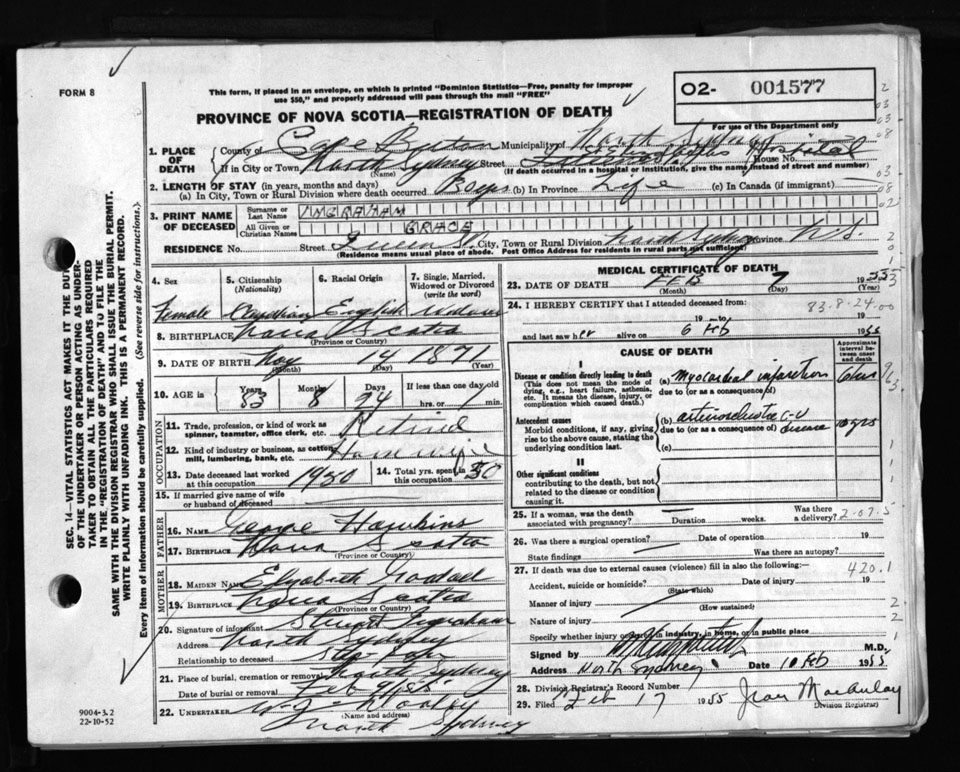 FORM 8
This form, if placed in an envelope, on which is printed "Dominion Statistics—Free, penalty for improper
use $50," and properly addressed will pass through the mail "FREE"
O2- 001577
PROVINCE OF NOVA SCOTIA—REGISTRATION OF DEATH
For use of the Department only
1. PLACE OF DEATH County of Cape Breton Municipality of North Sydney
If in City or Town North Sydney Street Hospital House No.
(Name) (If death occurred in a hospital or institution, give the name instead of street and number)
2. LENGTH OF STAY (in years, months and days)
(a) In City, Town or Rural Division where death occurred (b) In Province Life (c) In Canada (if immigrant)
3. PRINT NAME OF DECEASED Surname or Last Name INGRAHAM
All Given or Christian Names GRACE
RESIDENCE No. Street Queen St. City, Town or Rural Division North Sydney Province N.S.
(Residence means usual place of abode. Post Office Address for residents in rural parts not sufficient)
4. Sex 5. Citizenship (Nationality) 6. Racial Origin 7. Single, Married, Widowed or Divorced (write the word)
Female Canadian English Widow
8. BIRTHPLACE Nova Scotia
(Province or Country)
9. DATE OF BIRTH 14 1871
(Month) (Day) (Year)
10. AGE in Years Months Days If less than one day old
83 8 24 hrs. or min.
OCCUPATION
11. Trade, profession, or kind of work as spinner, teamster, office clerk, etc. Retired
12. Kind of industry or business, as cotton, lumbering, bank, etc. Housewife
13. Date deceased last worked at this occupation 1950 14. Total yrs. spent in this occupation 50
15. If married give name of wife or husband of deceased
FATHER
16. NAME George Hawkins
17. BIRTHPLACE Nova Scotia
(Province or Country)
MOTHER
18. MAIDEN NAME Elizabeth
19. BIRTHPLACE Nova Scotia
(Province or Country)
20. Signature of informant Stuart Ingraham
Address North Sydney
Relationship to deceased Step Son
21. Place of burial, cremation or removal North Sydney
Date of burial or removal Feb 9/55
22. UNDERTAKER W. J. Dooley
(Name and address)
North Sydney
MEDICAL CERTIFICATE OF DEATH
23. DATE OF DEATH FEB 7 1955
(Month) (Day)
24. I HEREBY CERTIFY that I attended deceased from:
83-8-24-00
19 to 19
and last saw her alive on 6 Feb 1955
CAUSE OF DEATH
Approximate interval between onset and death
I
Disease or condition directly leading to death
(This does not mean the mode of dying, e.g., heart failure, asthenia, etc. It means the disease, injury, or complication which caused death.)
(a) Myocardial infarction
due to (or as a consequence of)
Antecedent causes
Morbid conditions, if any, giving rise to the above cause, stating the underlying condition last.
(b) arteriosclerotic C-V disease 10 yrs
due to (or as a consequence of)
(c)
II
Other significant conditions
contributing to the death, but not related to the disease or condition causing it.
25. If a woman, was the death associated with pregnancy? Duration weeks. Was there a delivery?
26. Was there a surgical operation? Date of operation 19
State findings Was there an autopsy?
27. If death was due to external causes (violence) fill in also the following:—
420.1
Accident, suicide or homicide? Date of injury 19
(State which)
Manner of injury
(How sustained)
Nature of injury
Specify whether injury occurred in industry, in home, or in public place
Signed by M.D.
Address North Sydney Date 10 Feb 1955
28. Division Registrar's Record Number
29. Filed Feb 17 1955 Jean MacAulay
(Division Registrar)
SEC. 14—VITAL STATISTICS ACT MAKES IT THE DUTY
OF THE UNDERTAKER OR PERSON ACTING AS UNDER-
TAKER TO OBTAIN ALL THE PARTICULARS REQUIRED
IN THE "REGISTRATION OF DEATH" AND TO FILE THE
SAME WITH THE DIVISION REGISTRAR WHO SHALL ISSUE THE BURIAL PERMIT.
WRITE PLAINLY WITH UNFADING INK. THIS IS A PERMANENT RECORD.
Every item of information should be carefully supplied. (See reverse side for instructions.)
9004-3.2
22-10-52